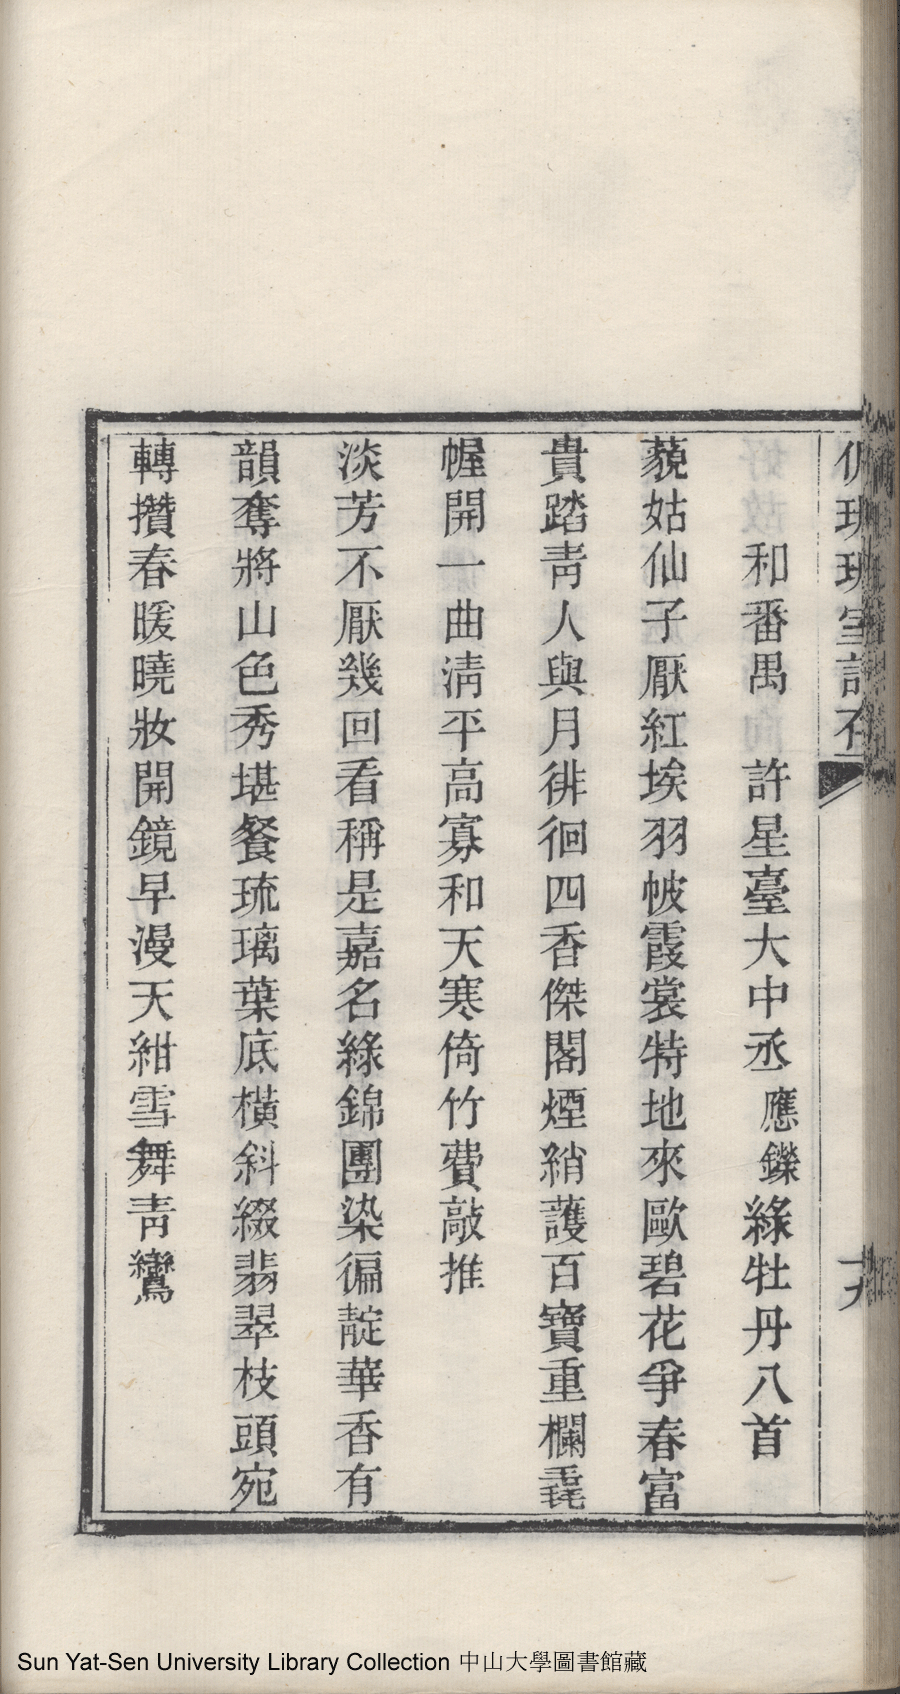 和番禺　許星臺大中丞應鑅綠牡丹八首
藐姑仙子厭紅埃羽帔霞裳特地來歐碧花爭春富
貴踏靑人與月徘徊四香傑閣煙綃護百寶重欄毳
幄開一曲淸平高寡和天寒倚竹費敲推
淡芳不厭幾回看稱是嘉名綠錦團染徧靛華香有
韻奪將山色秀堪餐琉璃葉底橫斜綴翡翠枝頭宛
轉攢春暖曉妝開鏡早漫天紺雪舞靑鸞
Sun Yat-Sen University Library Collection 中山大學圖書館藏